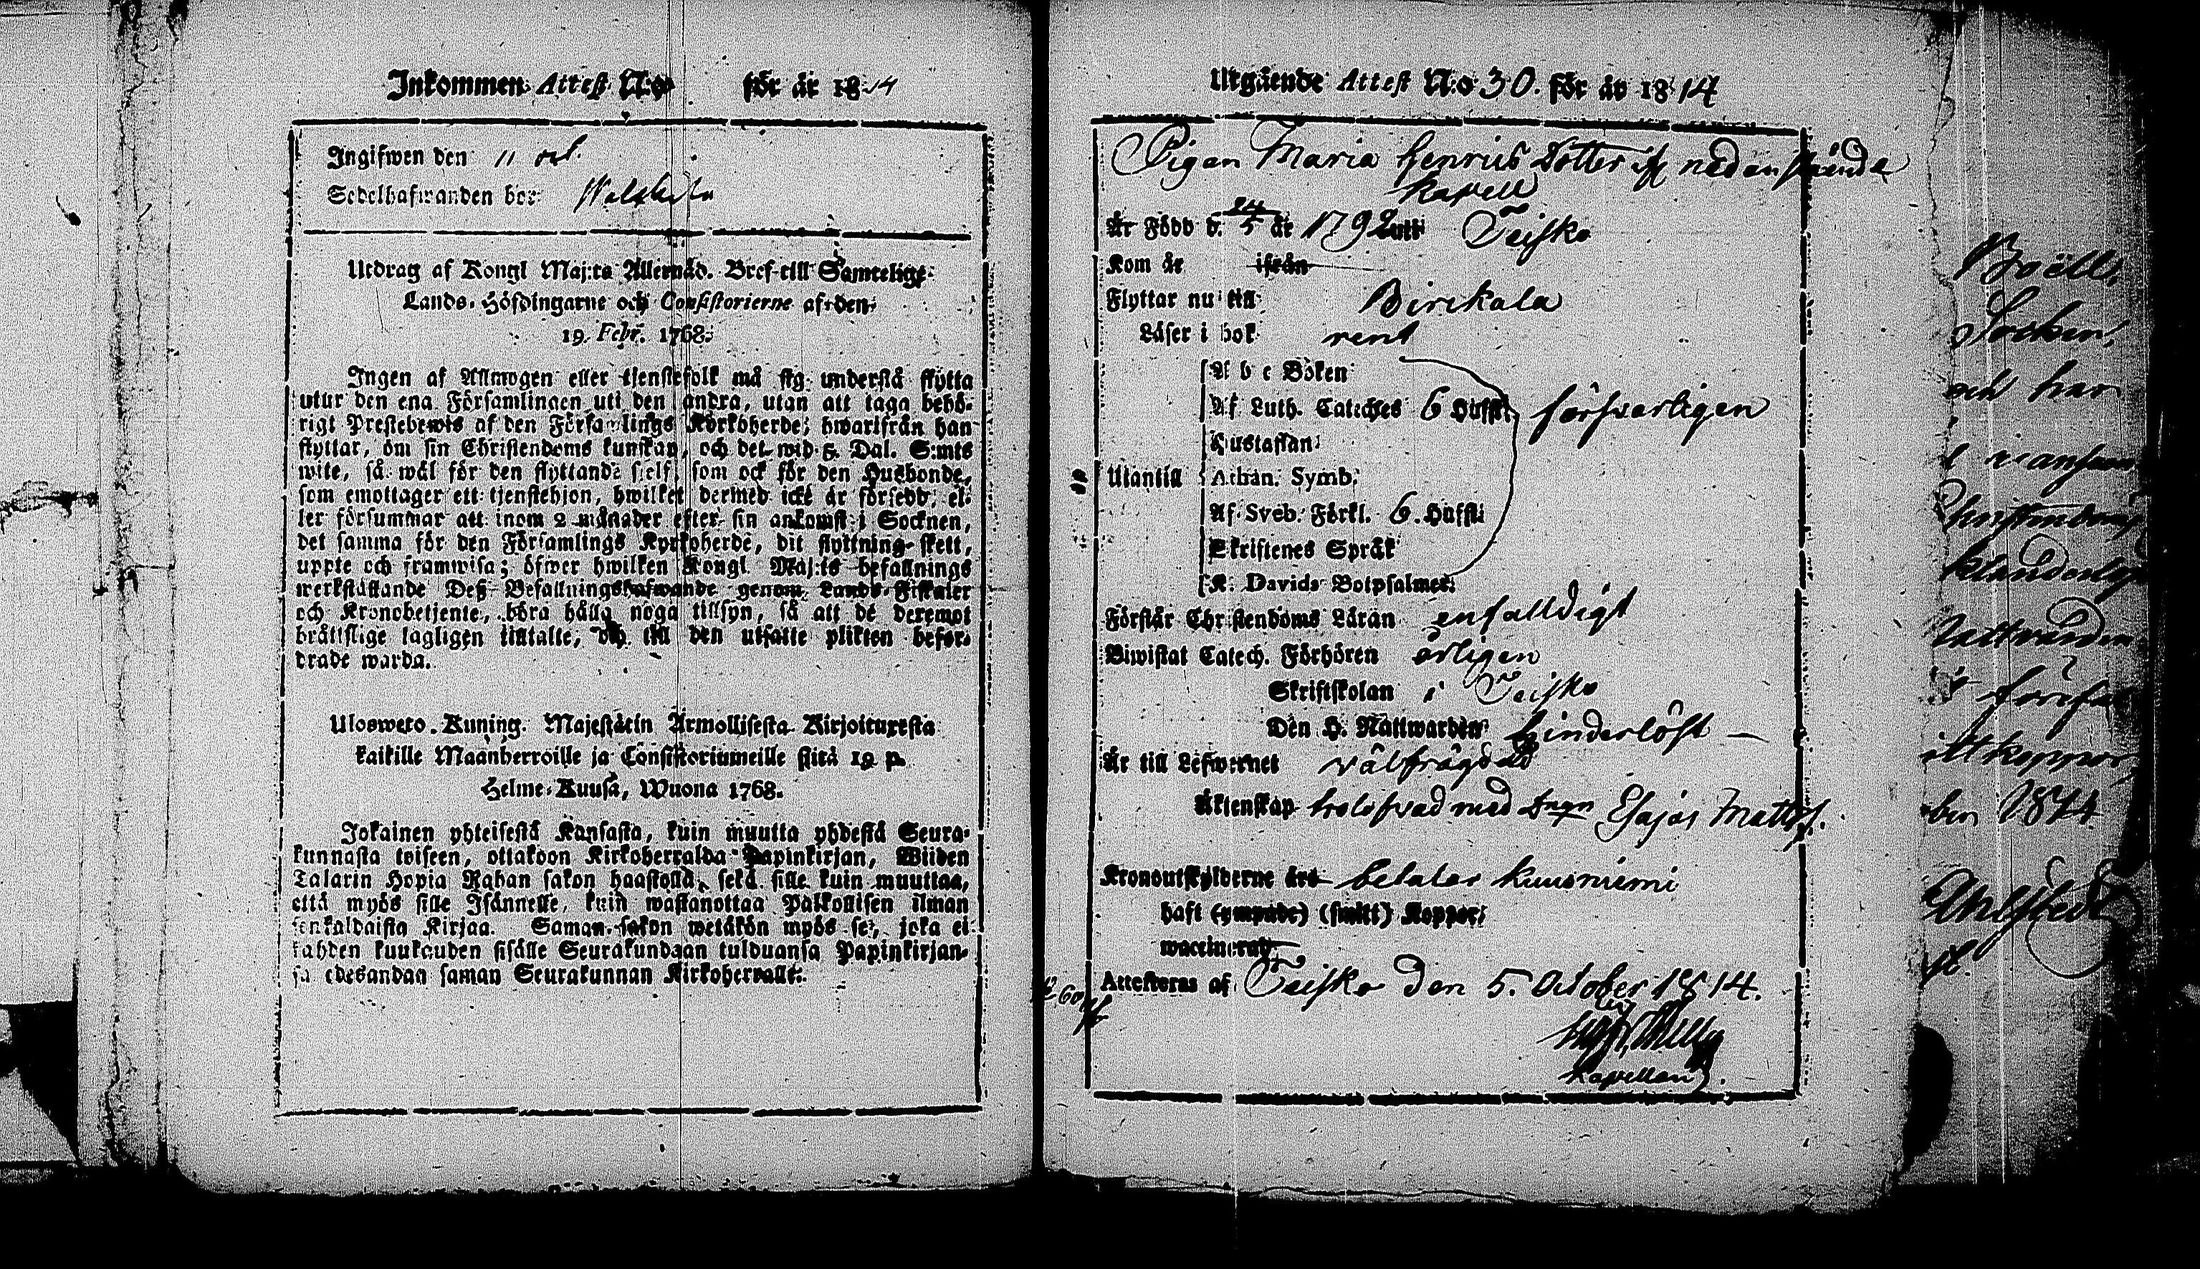 Inkommen Attest N:o för år 1814
Ingifwen den 11 oct.
Sedelhafwanden bor
Utdrag af Kongl Maj:ts Allernåd. Bref till Samtelige
Lands-Höfdingarne och Consistorierne af den
19 Febr. 1768.
Ingen af Allmogen eller tjenstefolk må sig understå flytta
utur den ena Församlingen uti den andra, utan att taga behö-
rigt Prestebewis af den Församlings Kyrkoherde, hwarifrån han
flyttar, om sin Christendoms kunskap, och det wid 5 Dal. S:mts
wite, så wäl för den flyttande sjelf, som ock för den Husbonde,
som emottager ett tjenstehjon, hwilket dermed icke är försedd, el-
ler försummar att inom 2 månader efter sin ankomst i Socknen,
det samma för den Församlings Kyrkoherde, dit flyttning skett,
uppte och framwisa; öfwer hwilken Kongl Maj:ts befallnings
werkställande Deß Befallningshafwande genom Lands-Fiskaler
och Kronobetjente, böra hålla noga tillsyn, så att de deremot
bråttslige lagligen tilltalte, och till den utsatte plikten befor-
drade warda.
Ulosweto Kuning. Majestätin Armollisesta Kirjoituxesta
kaikille Maanherroille ja Consistoriumeille siitä 19 p.
Helme-Kuusa, Wuona 1768.
Jokainen yhteisestä Kansasta, kuin muutta yhdestä Seura-
kunnasta toiseen, ottakoon Kirkoherralda Papinkirjan, Wiiden
Talarin Hopia Rahan sakon haastolla, sekä sille kuin muuttaa,
että myös sille Isännelle, kuin wastanottaa Palkollisen ilman
senkaldaista Kirjaa. Saman sakon wetäkön myös se, joka ei
kahden kuukauden sisälle Seurakundaan tulduansa Papinkirjan-
sa edesandan saman Seurakunnan Kirkoherralle.
Utgående Attest N:o 30. för år 1814
Pigan Maria Henrics Dotter nedanstående
kapell
Är Född d. 24/5 år 1792 uti Teisko
Kom år ifrån
Flyttar nu till Birckala
Läser i bok rent
A b c Boken
Af Luth. Catches 6 Hufst. försvarligen
Hustaflan
Utantill Athan. Symb.
Af Sveb. Förkl. 6. Hufst.
Skriftenes Språk
K. Davids Botpsalmer.
Förstår Christendoms Läran enfalldigt
Biwistat Catech. Förhören årligen
Skriftskolan i Teisko
Den H. Nattwarden hinderlöst —
Är till Lefwernet välfrägdad
Äktenskap trolofvad med Esajas Matts.
Kronoutskylderne äro betalar Kuusniemi
haft (ympade) (smitt) Koppor,
waccinerad
Attesteras af Teisko den 5. October 1814.
Kapellan
Socken,
och har
1814
Ahlstedt